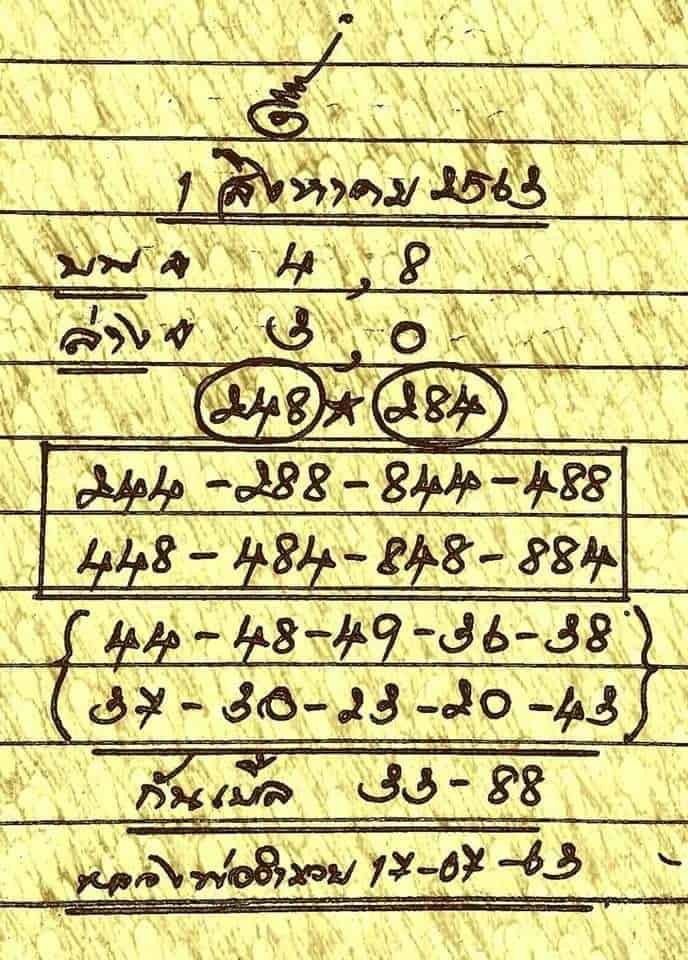 1 สิงหาคม 2563
บน * 4, 8
ล่าง * 3, 0
248 ★ 284
244 - 288 - 844 - 488
448 - 484 - 848 - 884
44 - 48 - 49 - 36 - 38
37 - 30 - 23 - 20 - 43
กันเบิ้ล 33 - 88
หลวงพ่ออำนวย 17-07-63